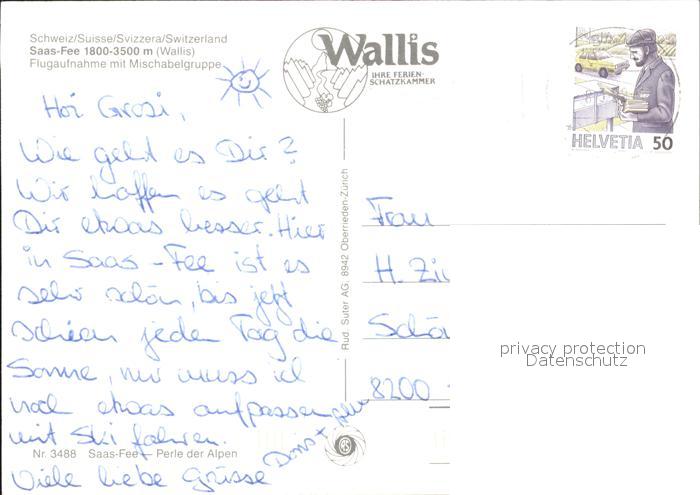 Schweiz/Suisse/Svizzera/Switzerland
Saas-Fee 1800-3500 m (Wallis)
Flugaufnahme mit Mischabelgruppe
Wallis
IHRE FERIEN-
SCHATZKAMMER
HELVETIA 50
Hoi Grosi,
Wie geht es Dir?
Wir hoffen es geht
Dir etwas besser. Hier
in Saas-Fee ist es
sehr schön, bis jetzt
schien jeden Tag die
Sonne, nur muss ich
noch etwas aufpassen
mit Ski fahren.
Viele liebe Grüsse
Rud. Suter AG, 8942 Oberrieden-Zürich
Frau
H. Zi
Schö
8200
privacy protection
Datenschutz
Nr. 3488 Saas-Fee – Perle der Alpen